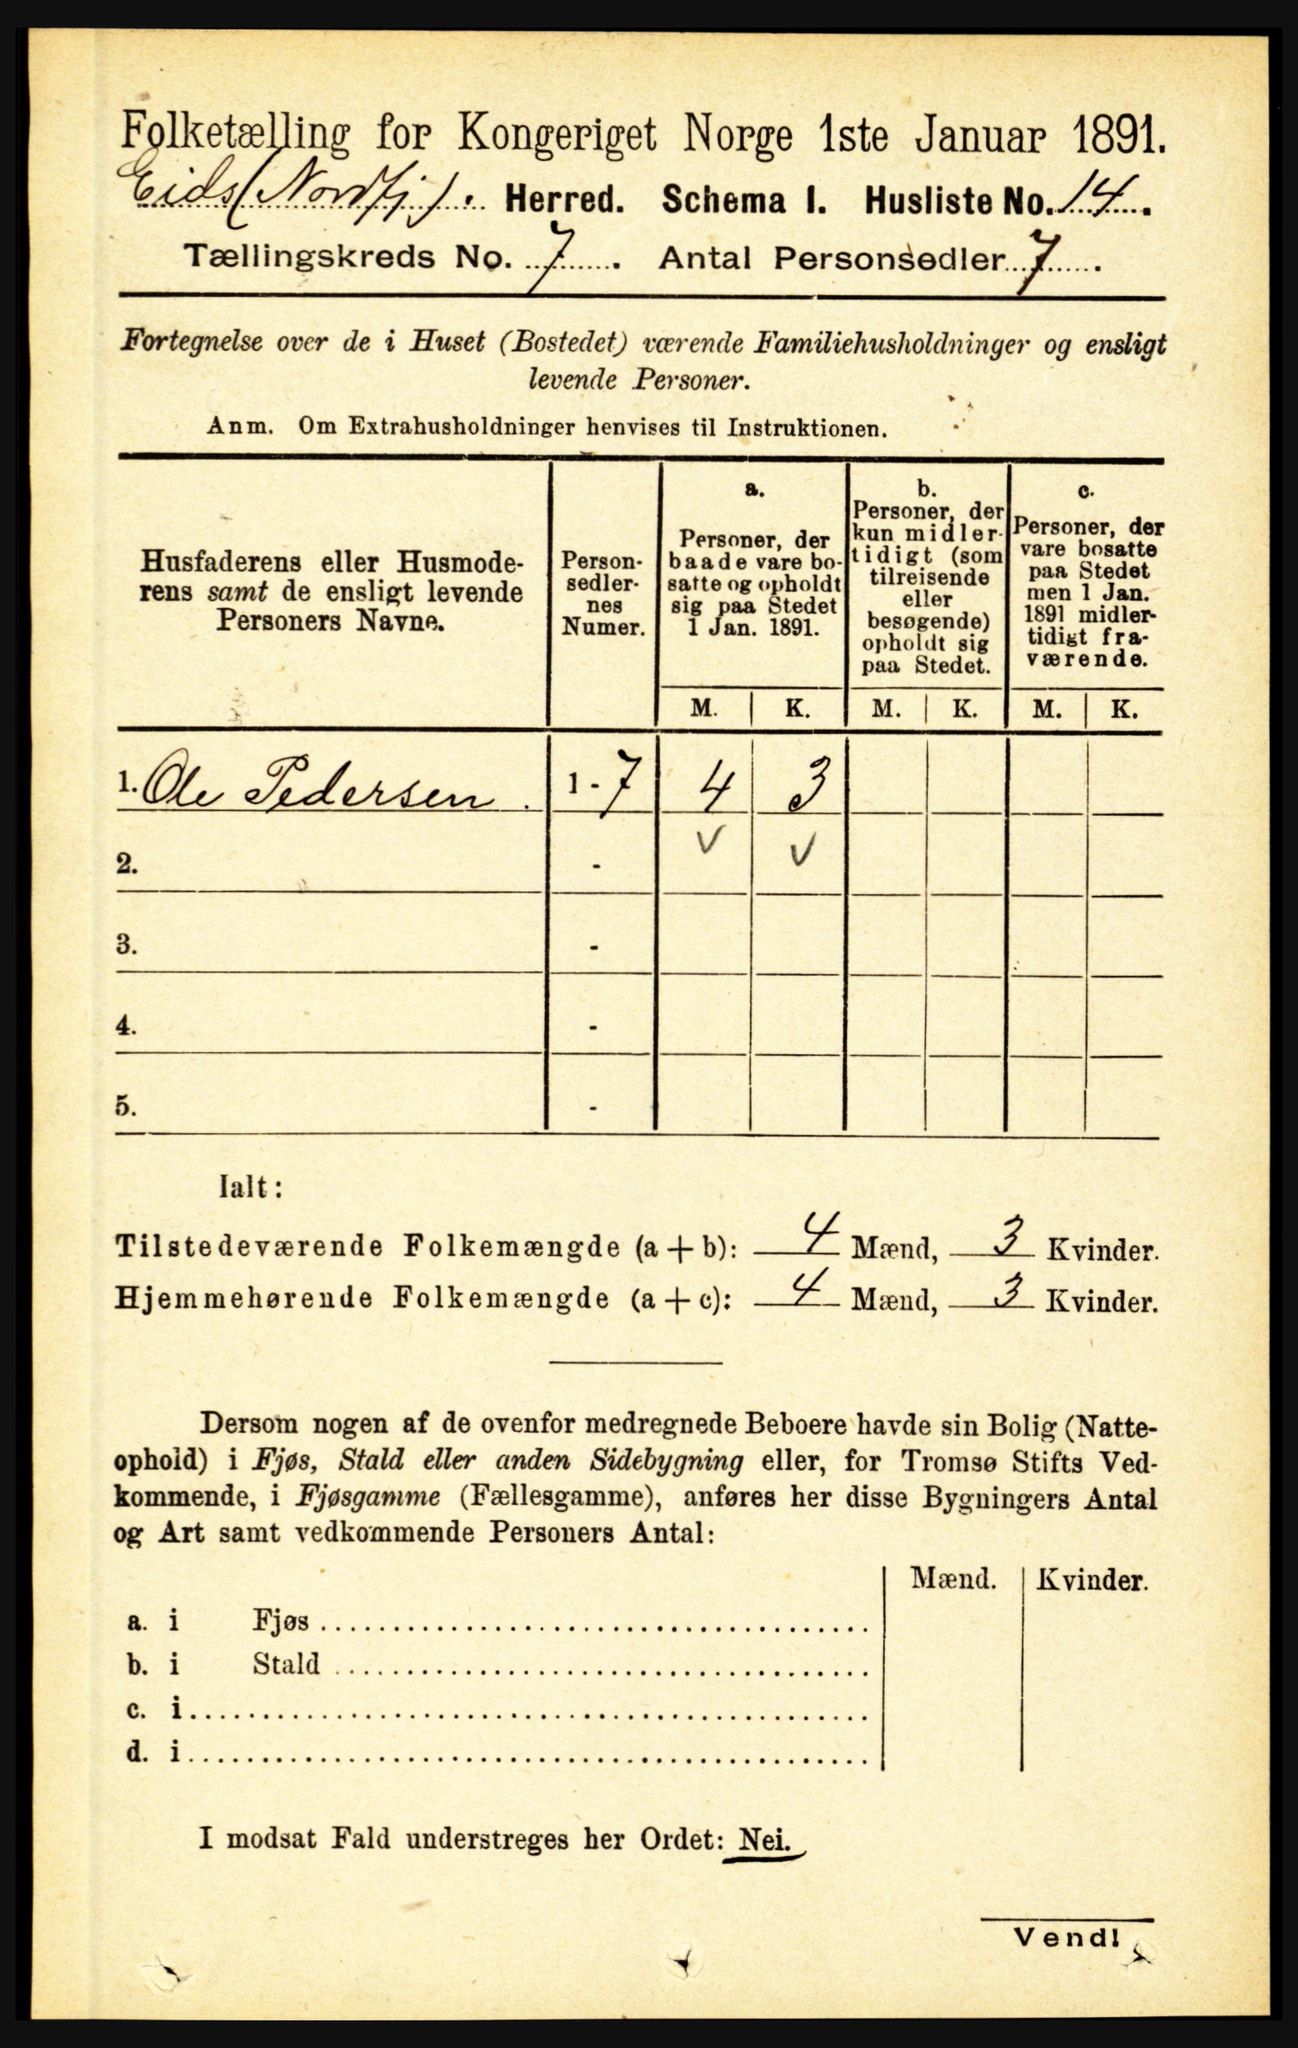 Folketælling for Kongeriget Norge 1ste Januar 1891.
Eids (Nordfj). Herred. Schema I. Husliste No. 14.
Tællingskreds No. 7. Antal Personsedler 7.
Fortegnelse over de i Huset (Bostedet) værende Familiehusholdninger og ensligt
levende Personer.
Anm. Om Extrahusholdninger henvises til Instruktionen.
Husfaderens eller Husmode-
rens samt de ensligt levende
Personers Navne.
Person-
sedler-
nes
Numer.
a.
Personer, der
baade vare bo-
satte og opholdt
sig paa Stedet
1 Jan. 1891.
b.
Personer, der
kun midler-
tidigt (som
tilreisende
eller
besøgende)
opholdt sig
paa Stedet.
c.
Personer, der
vare bosatte
paa Stedet
men 1 Jan.
1891 midler-
tidigt fra-
værende.
M. K. M. K. M. K.
1. Ole Pedersen. 1 - 7 4 3
2. - v v
3. -
4. -
5. -
Ialt:
Tilstedeværende Folkemængde (a + b): 4 Mænd, 3 Kvinder.
Hjemmehørende Folkemængde (a + c): 4 Mænd, 3 Kvinder.
Dersom nogen af de ovenfor medregnede Beboere havde sin Bolig (Natte-
ophold) i Fjøs, Stald eller anden Sidebygning eller, for Tromsø Stifts Ved-
kommende, i Fjøsgamme (Fællesgamme), anføres her disse Bygningers Antal
og Art samt vedkommende Personers Antal:
Mænd. Kvinder.
a. i Fjøs
b. i Stald
c. i
d. i
I modsat Fald understreges her Ordet: Nei.
Vend!